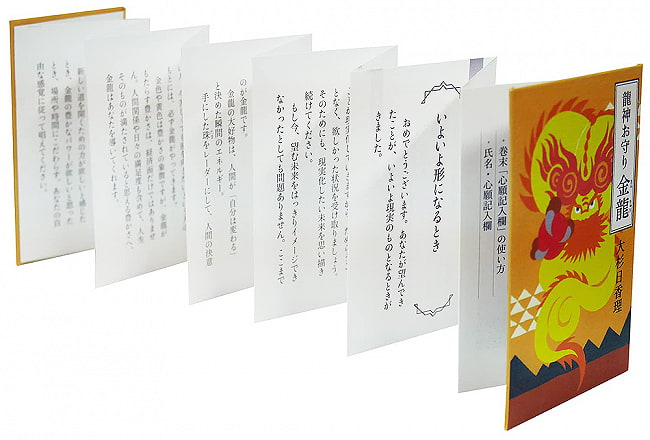 龍神お守り
金龍
大杉日香理
・巻末「心願記入欄」の使い方
・氏名・心願記入欄
いよいよ形になるとき
おめでとうございます。あなたが望んでき
たことが、いよいよ現実のものとなるときが
きました。
となく、欲しかった状況を受け取りましょう。
そのためにも、現実化したい未来を思い描き
続けてください。
もし今、望む未来をはっきりイメージでき
なかったとしても問題ありません。ここまで
のが金龍です。
金龍の大好物は、人間が「自分は変わる」
と決めた瞬間のエネルギー。
手にした珠をレーダーにして、人間の決意
もとには、必ず金龍がやってきます。
金色や黄色は豊かさの象徴ですが、金龍が
もたらす豊かさは、経済面だけではありませ
ん。人間関係や日々の満足度も含めて、人生
そのものが満たされていると思える豊かさへ、
金龍はあなたを導いてくれます。
新しい道を開くための力が欲しいと感じた
とき、金龍の豊かなパワーが欲しいと思った
とき、場所や時間にこだわらず、あなたの自
由な感覚に従って唱えてください。